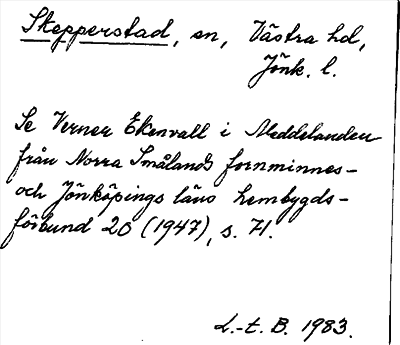 Skepperstad, sn, Västra hd,
Jönk. l.
Se Verner Ekenvall i Meddelanden
från Norra Smålands fornminnes-
och Jönköpings läns hembygds-
förbund 20 (1947), s. 71.
L.-t. B. 1983.